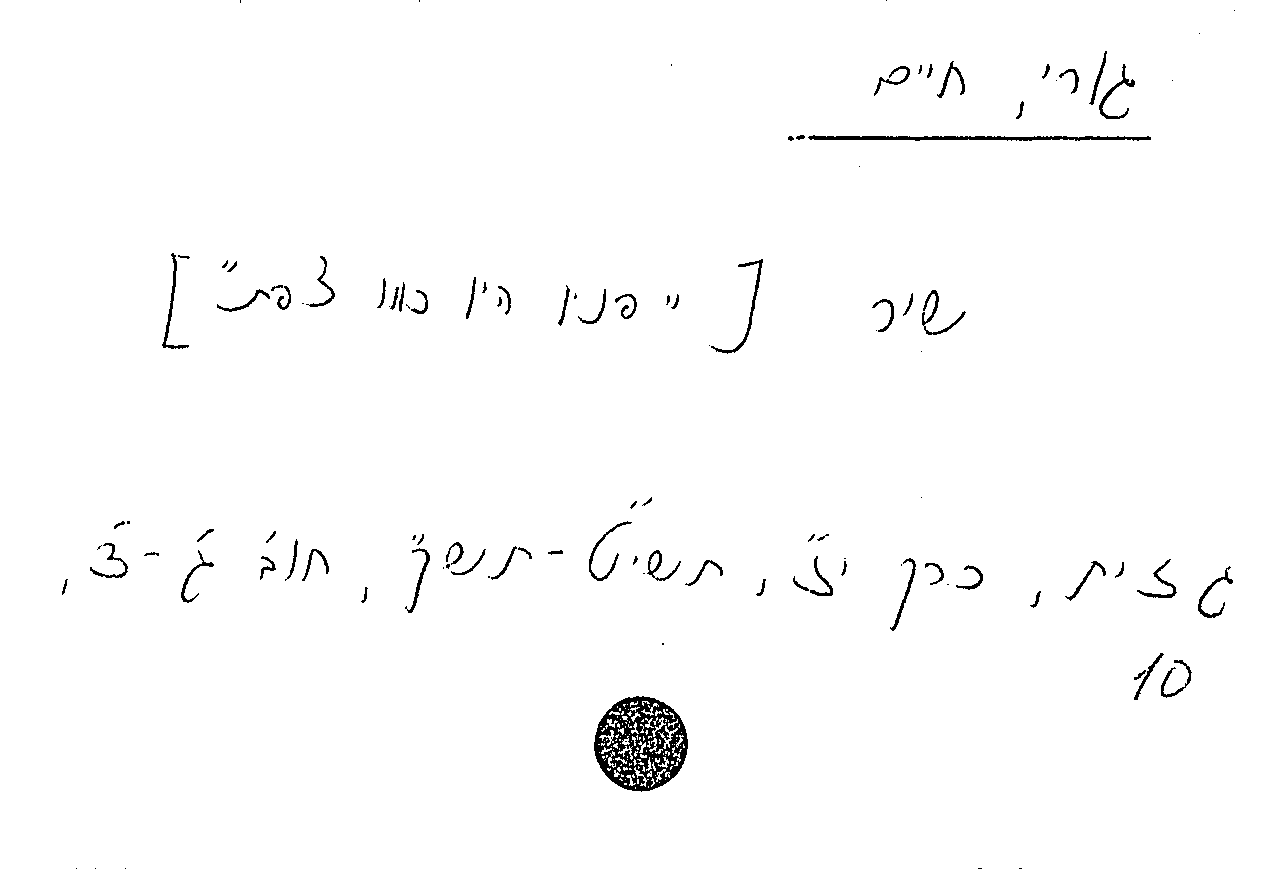 גורי, חיים
שיר ["פניו היו כמו צפת"]
גזית, כרך י"ז, תשי"ט-תש"ך, חוב' ג'-ד',
10